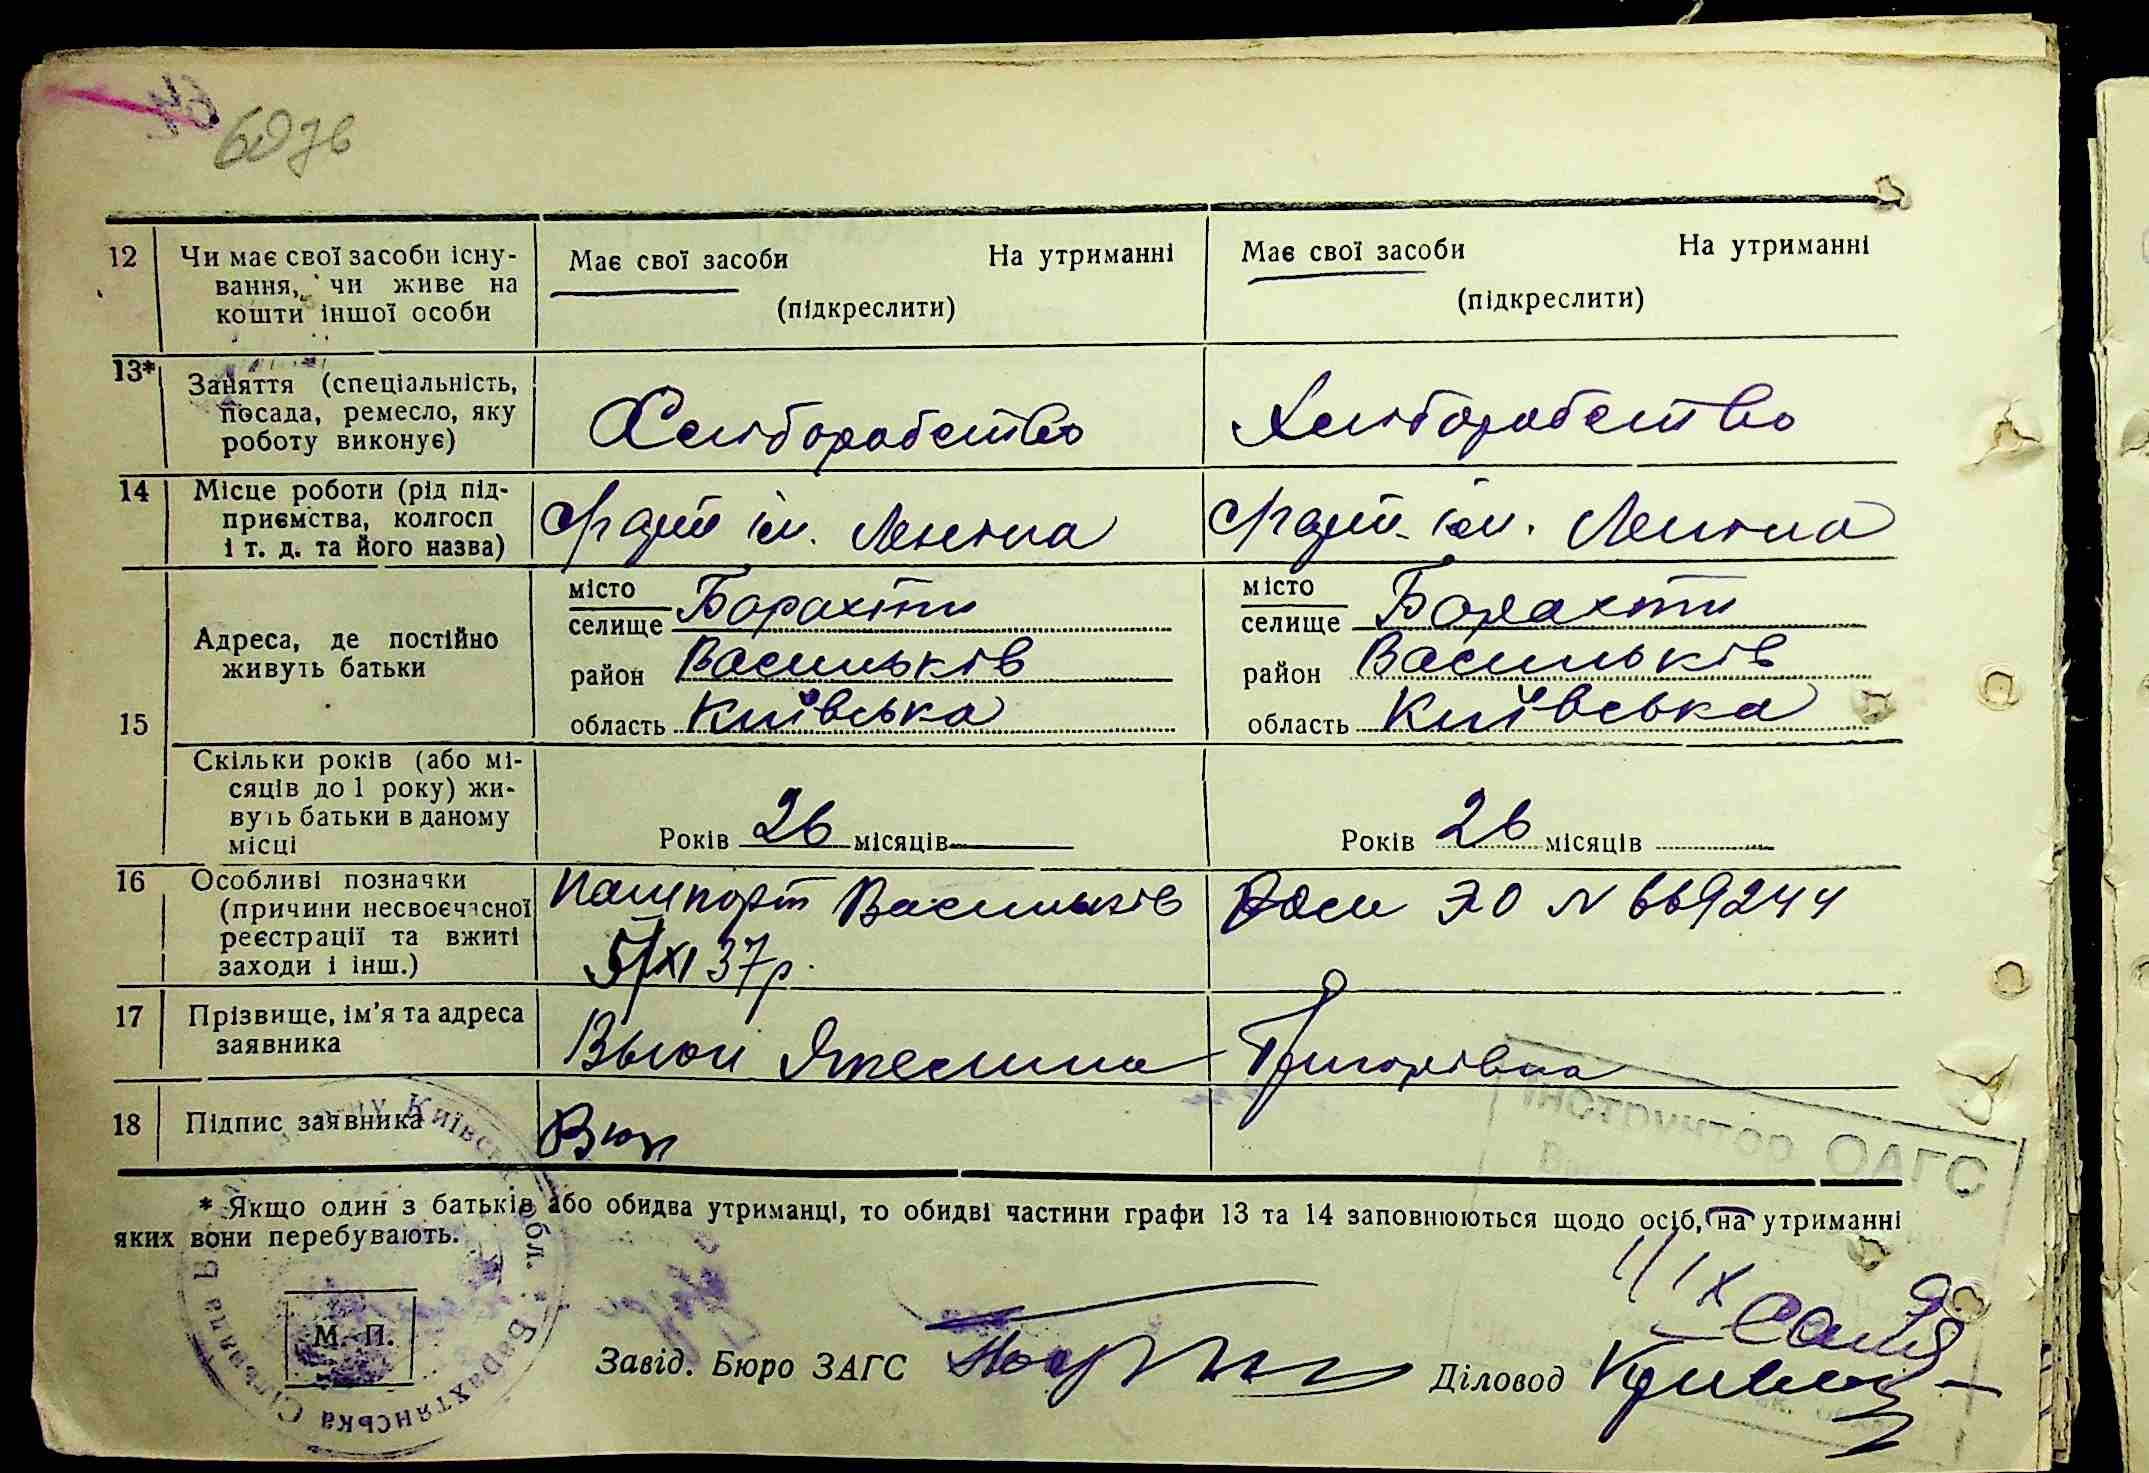 60зв
12 Чи має свої засоби існу-
вання, чи живе на
кошти іншої особи
Має свої засоби На утриманні
(підкреслити)
Має свої засоби На утриманні
(підкреслити)
13* Заняття (спеціальність,
посада, ремесло, яку
роботу виконує)
Хліборобство
Хліборобство
14 Місце роботи (рід під-
приємства, колгосп
і т. д. та його назва)
ім. Леніна
ім. Леніна
15 Адреса, де постійно
живуть батьки
місто
селище Борахти
район Васильків
область Київська
місто
селище Борахти
район Васильків
область Київська
Скільки років (або мі-
сяців до 1 року) жи-
вуть батьки в даному
місці
Років 26 місяців
Років 26 місяців
16 Особливі позначки
(причини несвоєчасної
реєстрації та вжиті
заходи і інш.)
Пашпорт Васильків
5/XI 37р.
ЭО № 669244
17 Прізвище, ім'я та адреса
заявника
Вьюн Григорівна
18 Підпис заявника
Вюн
* Якщо один з батьків або обидва утриманці, то обидві частини графи 13 та 14 заповнюються щодо осіб, на утриманні
яких вони перебувають.
М. П.
Завід. Бюро ЗАГС
Діловод
Інструктор ОАГС